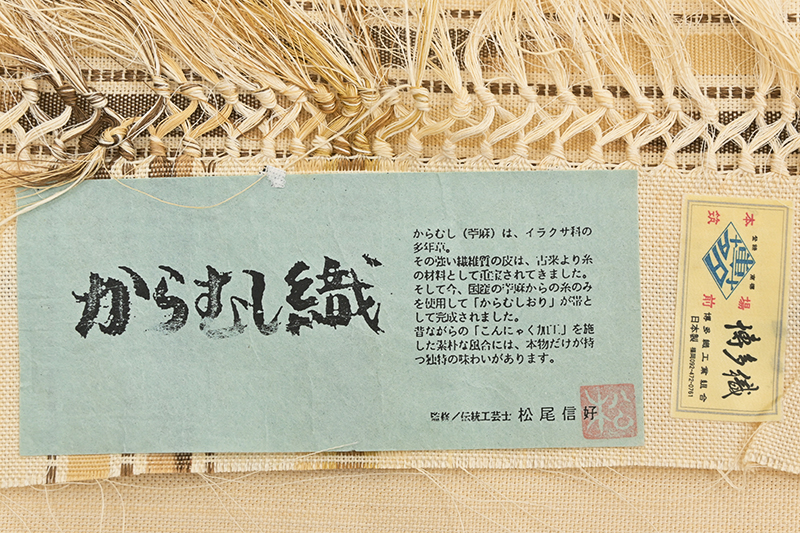 からむし織
からむし（苧麻）は、イラクサ科の
多年草。
その強い繊維質の皮は、古来より糸
の材料として重宝されてきました。
そして今、国産の苧麻からの糸のみ
を使用して「からむしおり」が帯と
して完成されました。
昔ながらの「こんにゃく加工」を施
した素朴な風合には、本物だけが持
つ独特の味わいがあります。
監修／伝統工芸士 松尾信好
本場
筑前
博多織
博多織工業組合
日本製 福岡092-472-0761